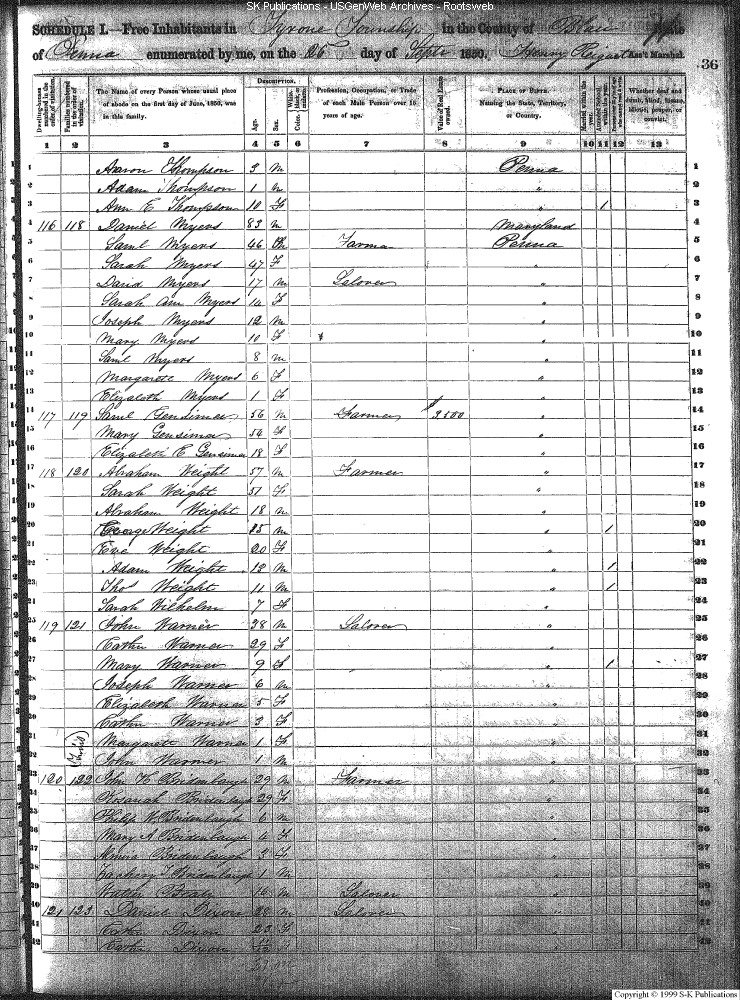 SK Publications - USGenWeb Archives - Rootsweb
SCHEDULE I.—Free Inhabitants in Tyrone Township in the County of Blair State
of Penna enumerated by me, on the 25 day of Sept 1850. Henry Ass't Marshal.
36
Dwelling-houses numbered in the order of visitation.
Families numbered in the order of visitation.
The Name of every Person whose usual place of abode on the first day of June, 1850, was in this family.
DESCRIPTION.
Age.
Sex.
Color.
Profession, Occupation, or Trade of each Male Person over 15 years of age.
Value of Real Estate owned.
PLACE OF BIRTH. Naming the State, Territory, or Country.
Married within the year.
Whether deaf and dumb, blind, insane, idiotic, pauper, or convict.
1 2 3 4 5 6 7 8 9 10 11 12 13
1 Aaron Thompson 3 M Penna 1
2 Adam Thompson 1 M " 2
3 Ann E Thompson 10 F " 1 3
4 116 118 Daniel Myers 83 M Maryland 4
5 Saml Myers 46 M Farmer Penna 5
6 Sarah Myers 47 F " 6
7 David Myers 17 M Labover " 7
8 Sarah Ann Myers 14 F " 8
9 Joseph Myers 12 M " 9
10 Mary Myers 10 F " 10
11 Saml Myers 8 M " 11
12 Margarete Myers 6 F " 12
13 Elizabeth Myers 1 F " 13
14 117 119 Saml Gensimer 56 M Farmer $ 3500 " 14
15 Mary Gensimer 54 F " 15
16 Elizabeth E Gensimer 18 F " 16
17 118 120 Abraham Weight 57 M Farmer " 17
18 Sarah Weight 51 F " 18
19 Abraham Weight 18 M " 19
20 George Weight 15 M " 1 20
21 Eve Weight 20 F " 21
22 Adam Weight 12 M " 1 22
23 Thos Weight 11 M " 1 23
24 Sarah Wilhelm 7 F " 24
25 119 121 John Warner 38 M Labover " 25
26 Cathn Warner 29 F " 26
27 Mary Warner 9 F " 1 27
28 Joseph Warner 6 M " 28
29 Elizabeth Warner 5 F " 29
30 Cathn Warner 3 F " 30
31 Margarete Warner 1 F " 31
32 John Warner 1 M " 32
33 120 122 John H Bridenbaugh 29 M Farmer " 33
34 Rosanah Bridenbaugh 29 F " 34
35 Philip W Bridenbaugh 6 M " 35
36 Mary A Bridenbaugh 4 F " 36
37 Bridenbaugh 3 F " 37
38 Zachery T Bridenbaugh 1 M " 38
39 16 M Labover " 39
40 121 123 Daniel Dixon 28 M Labover " 40
41 Cathn Dixon 23 F " 41
42 Cathn Dixon " 42
Copyright © 1999 S-K Publications